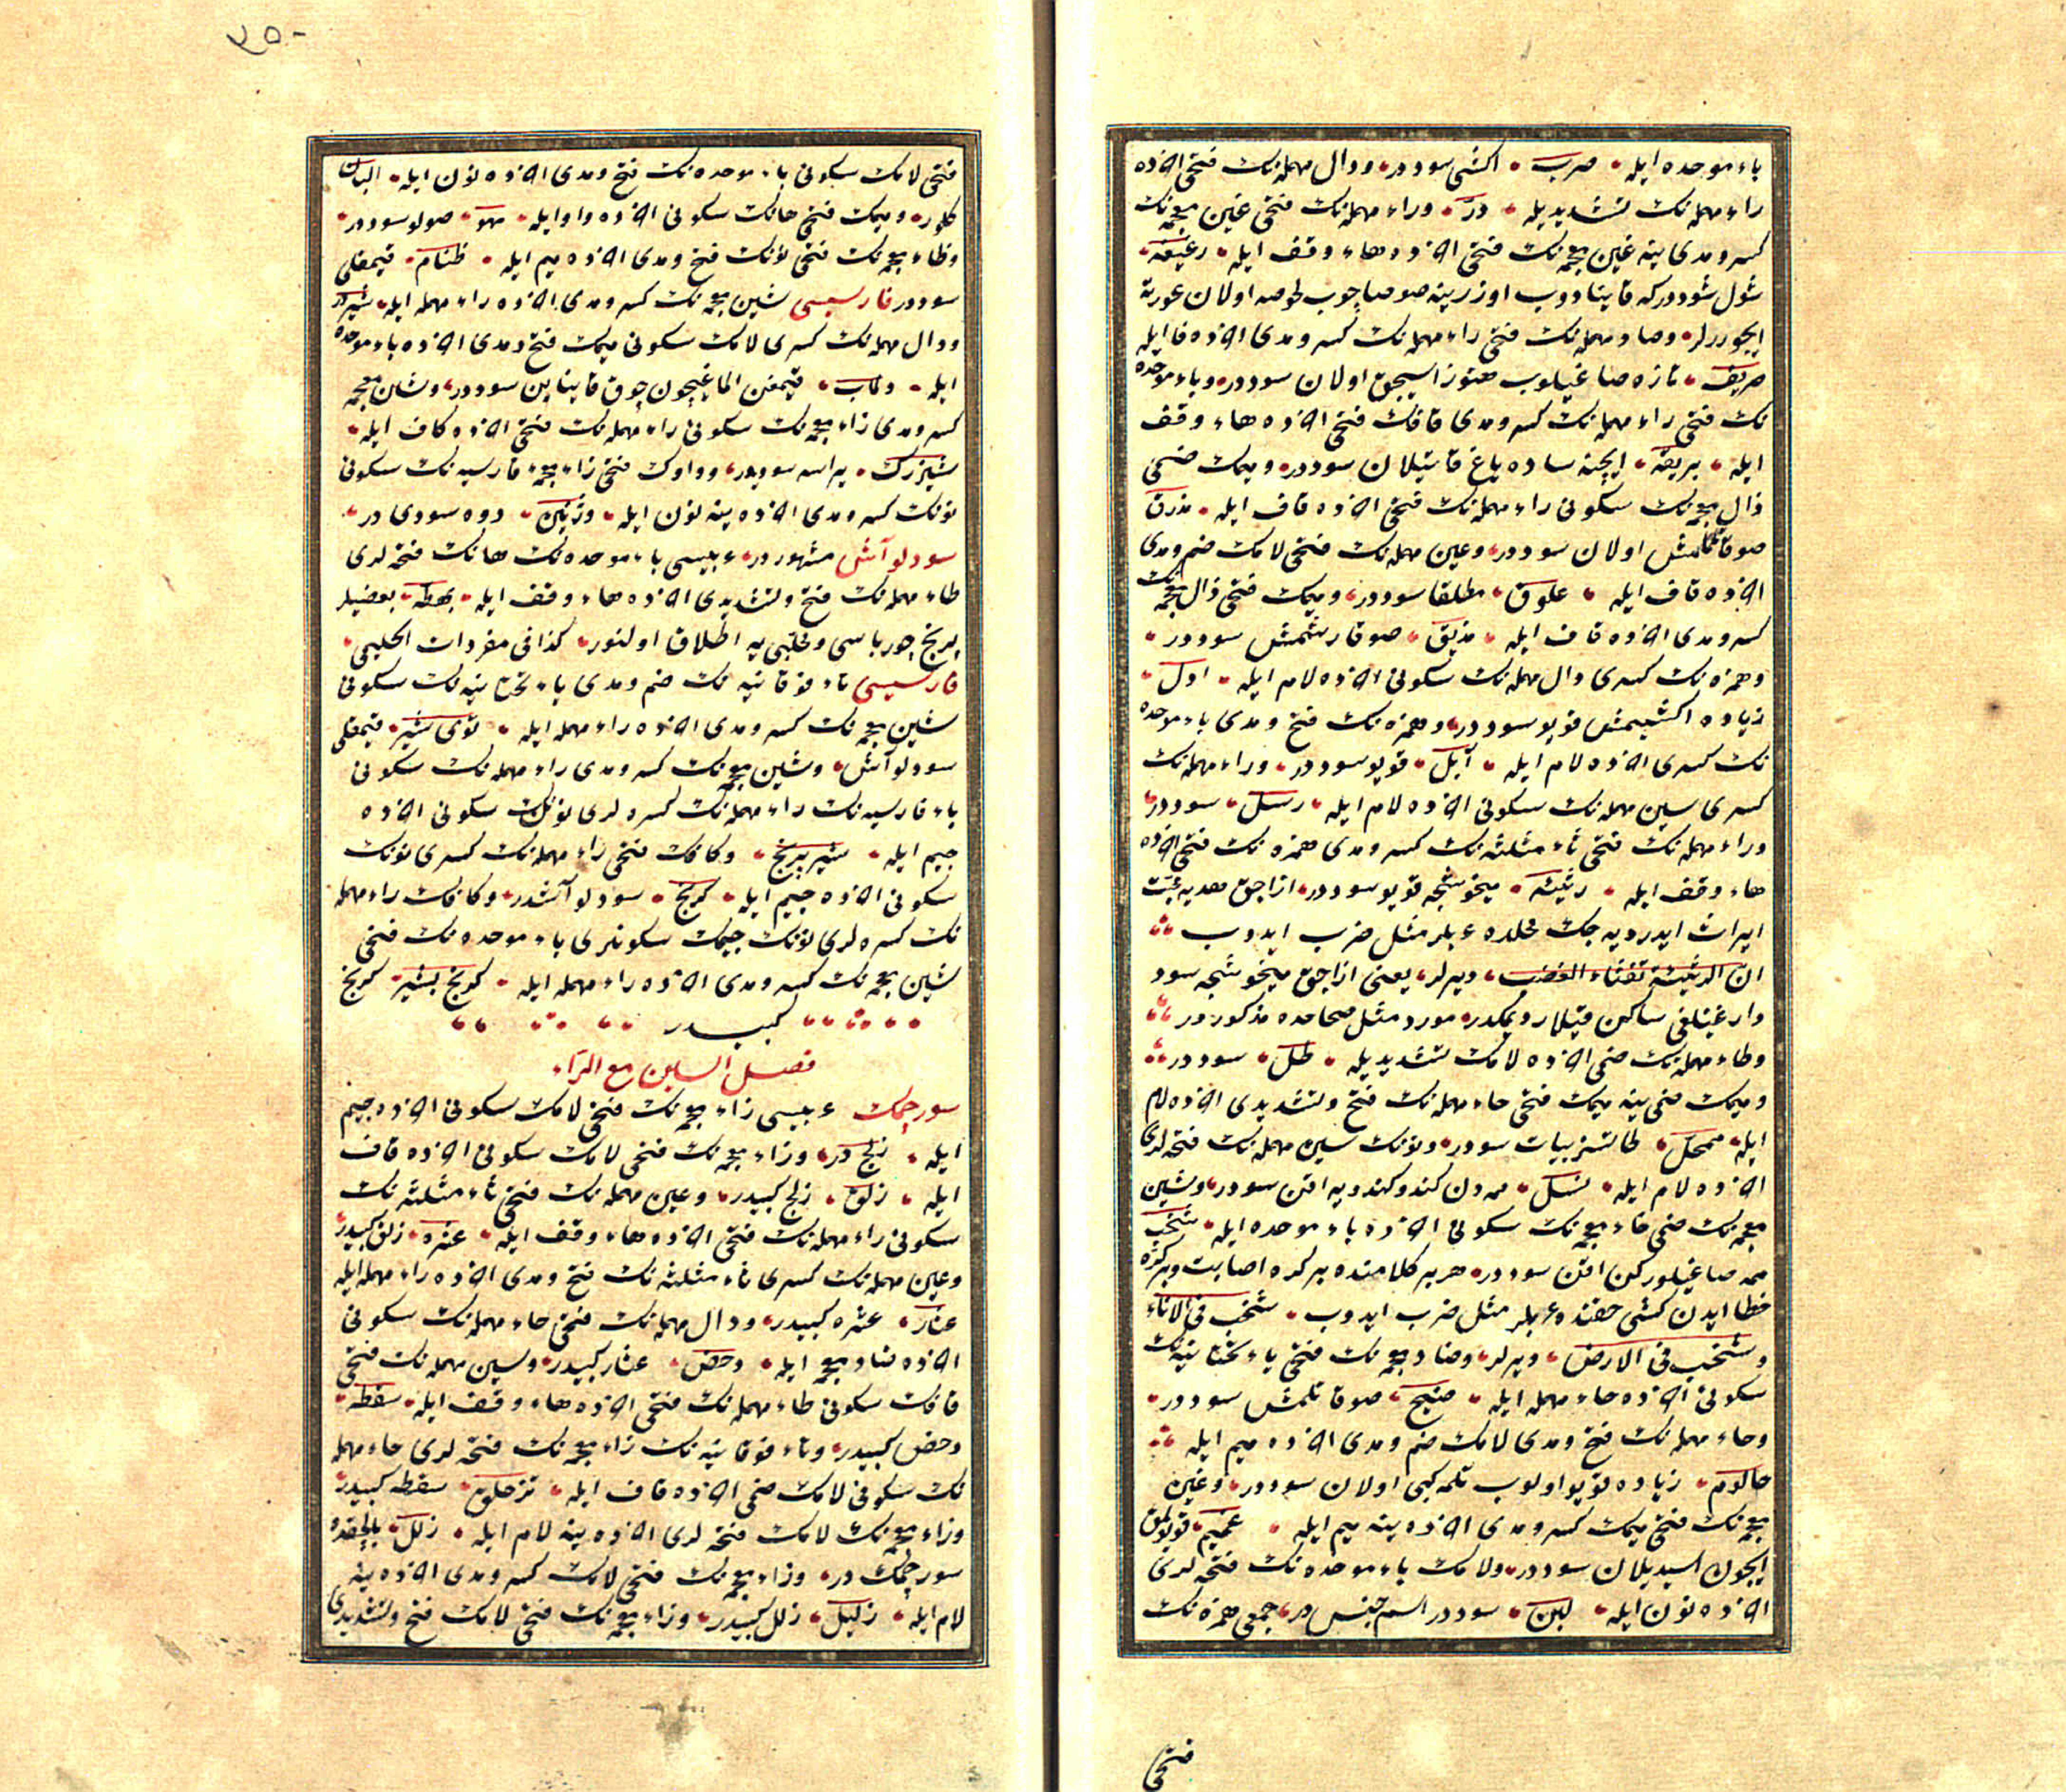 باء موحده ایله صرب اکشی سوددر ودال مهمله‌نک فتحی آخرده
راء مهمله‌نک تشدیدیله در وراء مهمله‌نک فتحی غین معجمه‌نک
کسر ومدی ینه غین معجمه‌نک فتحی آخرده هاء وقف ایله رغیغه
شول سوددرکه قاینادوب اوزرینه صو صاچوب لحوصه اولان عورته
ایچوررلر وصاد مهمله‌نک فتحی راء مهمله‌نک کسر ومدی آخرده فا ایله
صریف تازه صاغیلوب هنوز اسیجق اولان سوددر وباء موحده
نک فتحی راء مهمله‌نک کسر ومدی قافک فتحی آخرده هاء وقف
ایله بریقه ایچنه ساده یاغ قاتیلان سوددر ومیمک ضمی
ذال معجمه‌نک سکونی راء مهمله‌نک فتحی آخرده قاف ایله مذرق
صو قاتلمش اولان سوددر وعین مهمله‌نک فتحی لامک ضم ومدی
آخرده قاف ایله علوق مطلقا سوددر ومیمک فتحی ذال معجمه‌نک
کسر ومدی آخرده قاف ایله مذیق صو قارشمش سوددر
وهمزه‌نک کسری دال مهمله‌نک سکونی آخرده لام ایله ادل
زیاده اکشیمش قویو سوددر وهمزه‌نک فتح ومدی باء موحده
نک کسری آخرده لام ایله آبل قویو سوددر وراء مهمله‌نک
کسری سین مهمله‌نک سکونی آخرده لام ایله رسل سوددر
وراء مهمله‌نک فتحی ثاء مثلثه‌نک کسر ومدی همزه‌نک فتحی آخرده
هاء وقف ایله رثیئه میخوشجه قویو سوددر ازاجق هدیه محبت
ایراث ایدر دیه‌جک محلده عربلر مثل ضرب ایدوب
ان الرثیئة تفثاء الغضب دیرلر یعنی ازاجق میخوشجه سود
دارغینلغی ساکن قیلار دیمکدر مورد مثل صحاحده مذکوردر
وطاء مهمله‌نک ضمی آخرده لامک تشدیدیله طل سوددر
ومیمک ضمی ینه میمک فتحی حاء مهمله‌نک فتح وتشدیدی آخرده لام
ایله ممحل طاتسز بیات سوددر ونونک سین مهمله‌نک فتحه‌لری
آخرده لام ایله نسل ممه‌دن کندو کندویه اقن سوددر وشین
معجمه‌نک ضمی خاء معجمه‌نک سکونی آخرده باء موحده ایله شخب
ممه صاغیلورکن اقن سوددر هر بر کلامنده بر کره اصابت وبر کره
خطا ایدن کشی حقنده عربلر مثل ضرب ایدوب شخب فی الاناء
وشخب فی الارض دیرلر وضاد معجمه‌نک فتحی یاء تحتانیه‌نک
سکونی آخرده حاء مهمله ایله ضیح صو قاتلمش سوددر
وحاء مهمله‌نک فتح ومدی لامک ضم ومدی آخرده میم ایله
حالوم زیاده قویو اولوب تلمه کبی اولان سوددر وغین
معجمه‌نک فتحی میمک کسر ومدی آخرده ینه میم ایله غمیم قویولمق
ایچون اسیدیلان سوددر ولامک باء موحده‌نک فتحه‌لری
آخرده نون ایله لبن سوددر اسم جنس در جمعی همزه‌نک
فتحی
٢٥٠
فتحی لامک سکونی باء موحده‌نک فتح ومدی آخرده نون ایله البان
کلور ومیمک فتحی هانک سکونی آخرده واو ایله مهو صولو سوددر
وظاء معجمه‌نک فتحی نونک فتح ومدی آخرده میم ایله ظنام قیمقلی
سوددر فارسیسی شین معجمه‌نک کسر ومدی آخرده راء مهمله ایله شیردر
ودال مهمله‌نک کسری لامک سکونی میمک فتح ومدی آخرده باء موحده
ایله دلماب قیمغن الماغیچون چوق قاینایین سوددر وشین معجمه
کسر ومدی زاء معجمه‌نک سکونی راء مهمله‌نک فتحی آخرده کاف ایله
شیزرک یراسه سودیدر وواوک فتحی زاء معجمه فارسیه‌نک سکونی
نونک کسر ومدی آخرده ینه نون ایله وژنین دوه سودی در
سودلو آش مشهوردر عربیسی باء موحده‌نک هانک فتحه‌لری
طاء مهمله‌نک فتح وتشدیدی آخرده هاء وقف ایله بهطه بعضیلر
برنج چورباسی ومحلبی یه اطلاق اولنور کذا فی مفردات الحلیمی
فارسیسی تاء فوقانیه‌نک ضم ومدی یاء تحتانیه‌نک سکونی
شین معجمه‌نک کسر ومدی آخرده راء مهمله ایله توی شیر قیمقلی
سودلو آش وشین معجمه‌نک کسر ومدی راء مهمله‌نک سکونی
باء فارسیه‌نک راء مهمله‌نک کسره‌لری نونک سکونی آخرده
جیم ایله شیر برنج وکافک فتحی راء مهمله‌نک کسری نونک
سکونی آخرده جیم ایله کرنج سودلو آشدر وکافک راء مهمله
نک کسره‌لری نونک جیمک سکونلری باء موحده‌نک فتحی
شین معجمه‌نک کسر ومدی آخرده راء مهمله ایله کرنج بشیر کرنج
کبیدر
فصل السین مع الراء
سورچمک عربیسی زاء معجمه‌نک فتحی لامک سکونی آخرده جیم
ایله زلج در وزاء معجمه‌نک فتحی لامک سکونی آخرده قاف
ایله زلق زلج کبیدر وعین مهمله‌نک فتحی ثاء مثلثه‌نک
سکونی راء مهمله‌نک فتحی آخرده هاء وقف ایله عثره زلق کبیدر
وعین مهمله‌نک کسری ثاء مثلثه‌نک فتح ومدی آخرده راء مهمله ایله
عثار عثره کبیدر ودال مهمله‌نک فتحی حاء مهمله‌نک سکونی
آخرده ضاد معجمه ایله دحض عثار کبیدر وسین مهمله‌نک فتحی
قافک سکونی طاء مهمله‌نک فتحی آخرده هاء وقف ایله سقطه
دحض کبیدر وتاء فوقانیه‌نک زاء معجمه‌نک فتحه‌لری حاء مهمله
نک سکونی لامک ضمی آخرده قاف ایله تزحلق سقطه کبیدر
وزاء معجمه‌نک لامک فتحه‌لری آخرده ینه لام ایله زلل بالچقده
سورچمک در وزاء معجمه‌نک فتحی لامک کسر ومدی آخرده ینه
لام ایله زلیل زلل کبیدر وزاء معجمه‌نک فتحی لامک فتح وتشدیدی